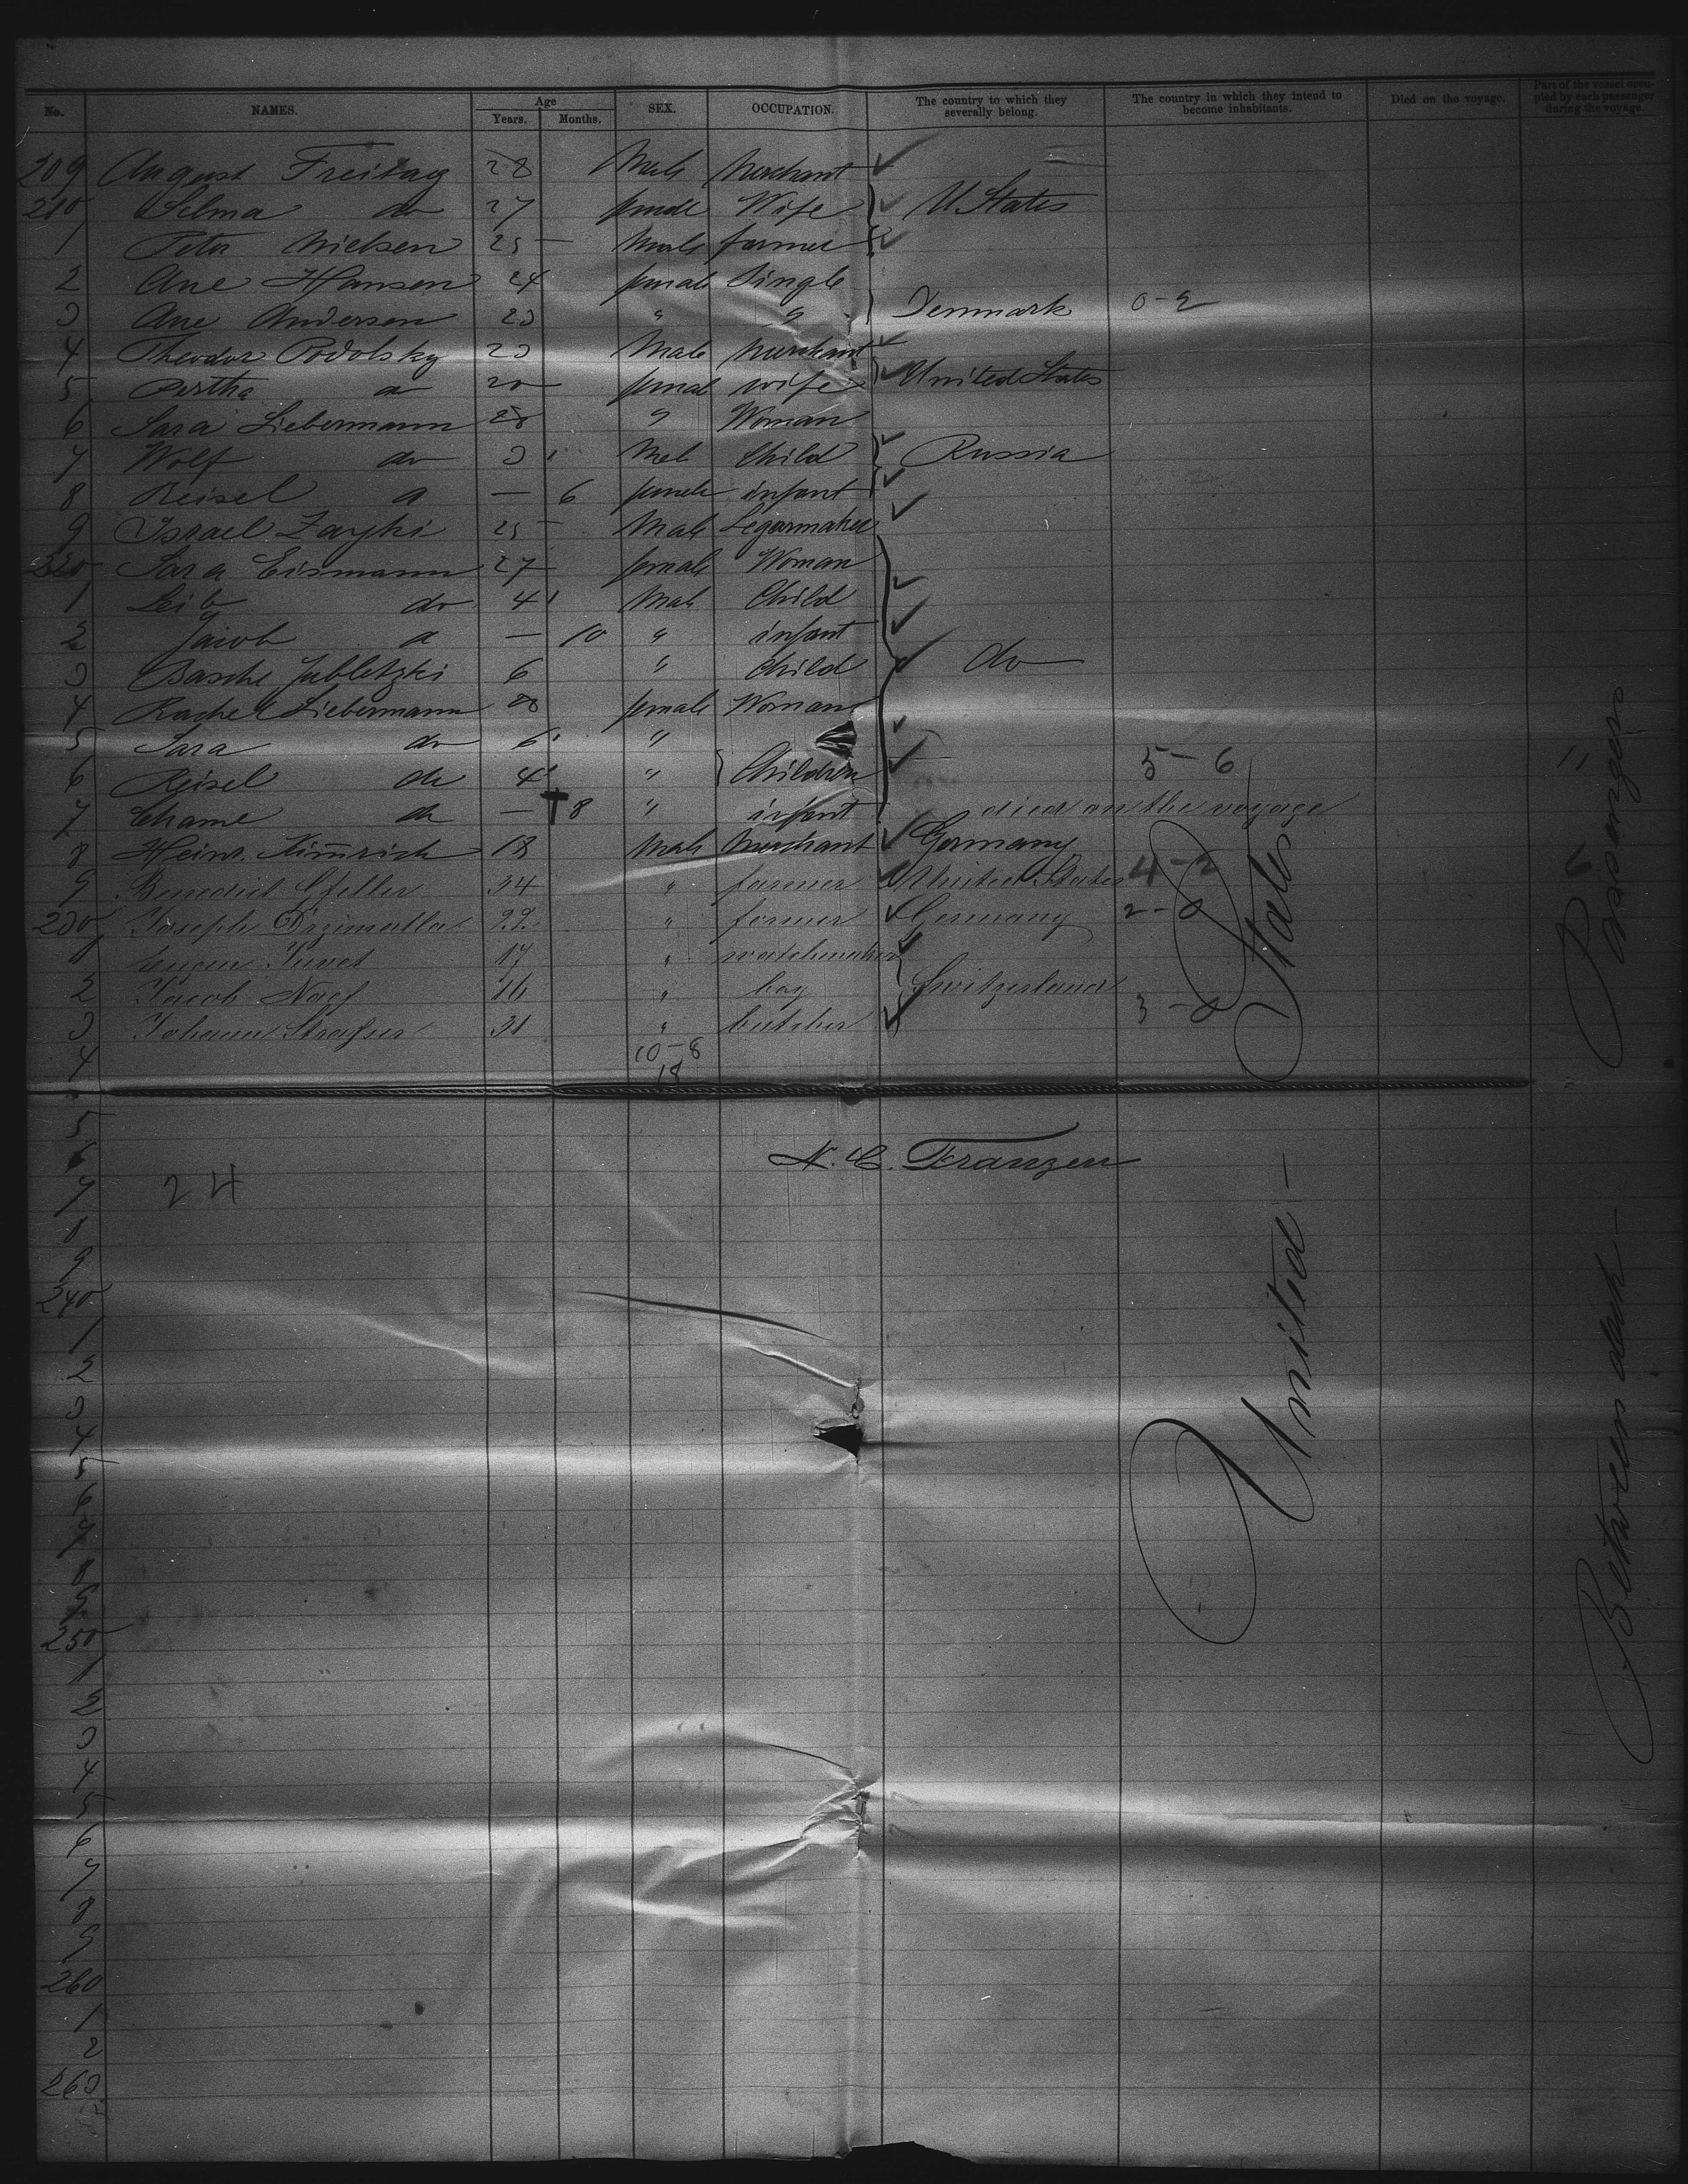 No. NAMES. Age Years. Months. SEX. OCCUPATION. The country to which they severally belong. The country in which they intend to become inhabitants. Died on the voyage. Part of the vessel occupied by each passenger during the voyage.
209 August Freitag 28 Male Merchant
210 Selma do 27 female Wife U States
1 Peter Nielsen 25 — Male farmer
2 Ane Hansen 24 female Single
3 Ane Andersen 23 " " Denmark 0-2
4 Theodor Podolsky 23 Male Merchant
5 Bertha do 20 female wife United States
6 Sara Liebermann 28 " Woman
7 Wolf do 3 Male Child Russia
8 Reisel do — 6 female infant
9 Israel 25 — Male Segarmaker
220 Sara Eismann 27 female Woman
1 Leib do 4 Male Child
2 Jacob do — 10 " infant
3 Basche Jubletzki 6 " Child do
4 Rachel Liebermann 28 female Woman
5 Sara do 6 "
6 Reisel do 4 " Children 5-6
7 Chame do — 8 " infant died on the voyage
8 Heinr. Kimrich 18 Male Merchant Germany
9 Benedict Gfeller 34 " farmer United States 4-2
230 Joseph Drzimalla 22 " farmer Germany 2-0
1 Eugen Juvet 17 " watchmaker
2 Jacob Naef 16 " boy Switzerland
3 Johann Strasser 31 " butcher 3-0
4 10-8
18
5
6
N. C. Franzen
7 24
8
9
240
1
2
3
4
5
6
7
8
9
250
1
2
3
4
5
6
7
8
9
260
1
2
263
United — States
Between deck — Passengers